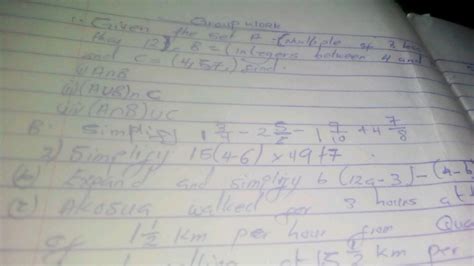 Group work
1. Given the set A = (multiple of 3 less
than 12), B = (integers between 4 and
and C = (4, 5, 7), find.
i) A∩B
ii) (A∪B)∩C
iii) (A∩B)∪C
B. Simplify 1 3/4 - 2 5/ - 1 7/10 + 4 7/8
2) Simplify 15(4-6) × 49÷7
(b) Expand and simplify 6(12a-3)-(a-b
(c) Akosua walked for 3 hours at
of 1 1/2 km per hour from
at km per